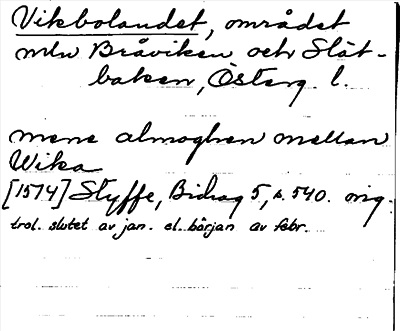 Vikbolandet, området
mln Bråviken och Slät-
baken, Österg. l.
mene almoghen mellan
Wika
[1514] Styffe, Bidrag 5, s. 540. orig.
trol. slutet av jan. el. början av febr.